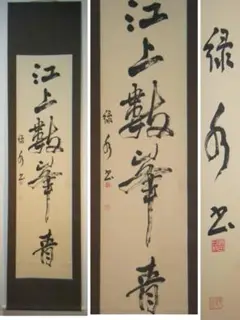 江上數峯青
緑水書
江上數峯青
緑水書
緑水書